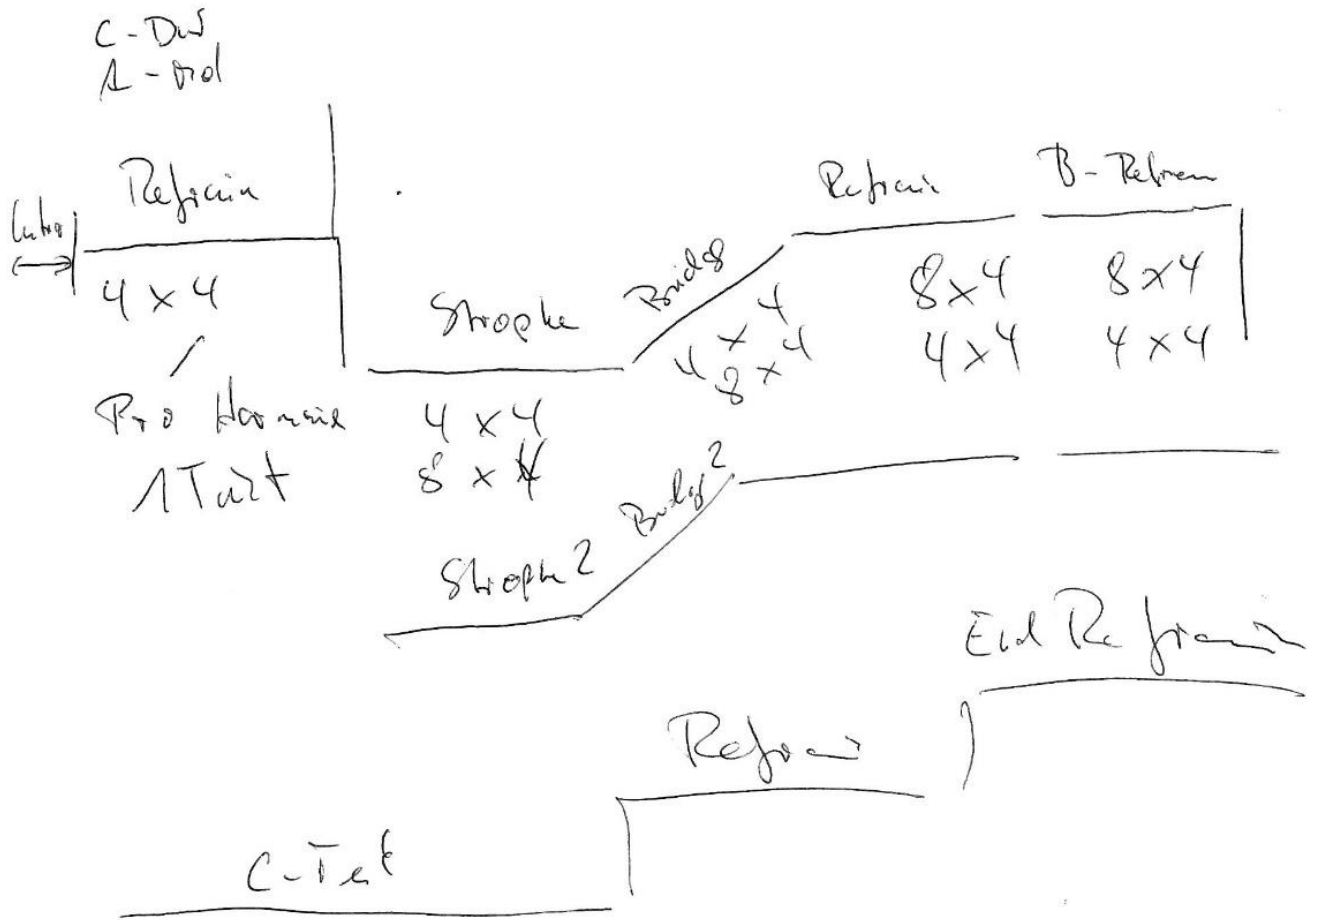 C-Dur
A-Mol
Intro
Refrain
4 x 4
Pro Harmonie
1 Takt
Strophe
4 x 4
8 x 4
Bridge
4 x 4
8 x 4
Refrain
8 x 4
4 x 4
B-Refrain
8 x 4
4 x 4
Strophe 2
Bridge 2
C-Teil
Refrain
End Refrain